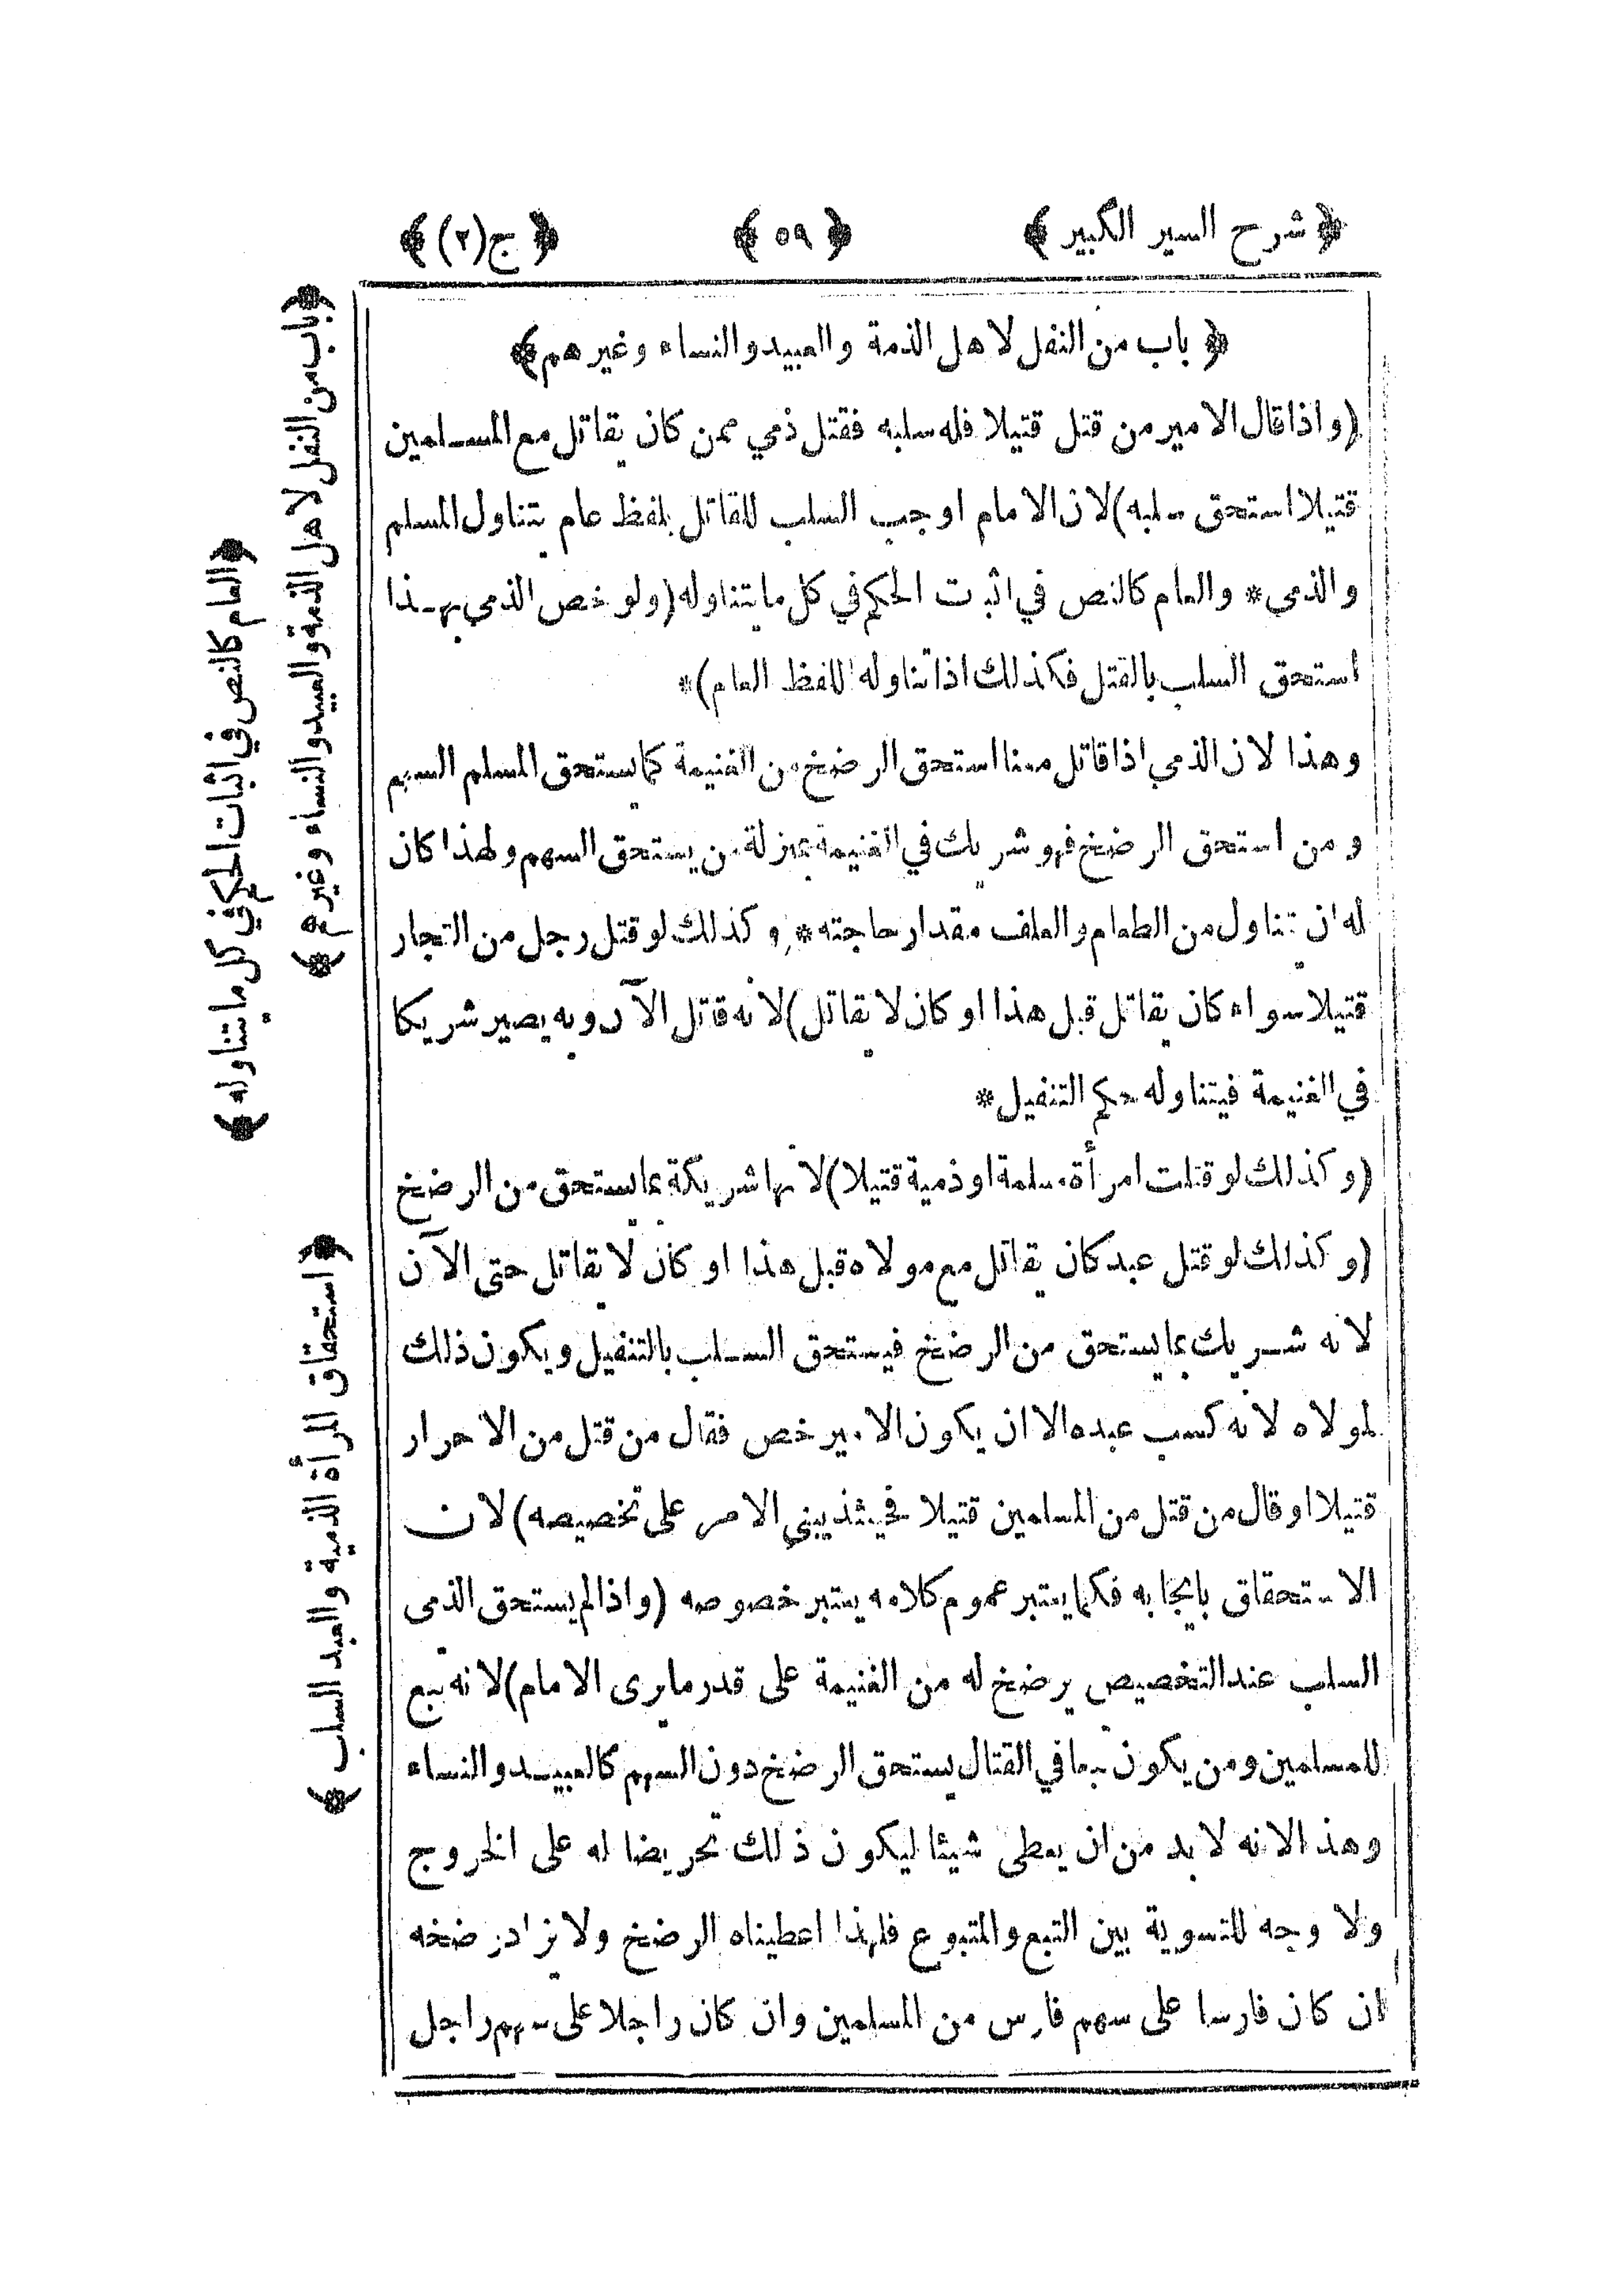 ﴿ شرح السير الكبير ﴾ ﴿ ٥٩ ﴾ ﴿ ج (٢) ﴾
﴿ باب من النفل لاهل الذمة والعبيد والنساء وغيرهم ﴾
(واذا قال الامير من قتل قتيلا فله سلبه فقتل ذمي ممن كان يقاتل مع المسلمين
قتيلا استحق سلبه) لان الامام اوجب السلب للقاتل بلفظ عام يتناول المسلم
والذمى * والعام كالنص في اثبات الحكم في كل ما يتناوله (ولو خص الذمي بهذا
استحق السلب بالقتل فكذلك اذا تناوله اللفظ العام) *
وهذا لان الذمي اذا قاتل معنا استحق الرضخ من الغنيمة كما يستحق المسلم السهم
ومن استحق الرضخ فهو شريك في الغنيمة بمنزلة من يستحق السهم ولهذا كان
له ان يتناول من الطعام والعلف مقدار حاجته * (وكذلك لو قتل رجل من التجار
قتيلا سواء كان يقاتل قبل هذا او كان لا يقاتل) لانه قاتل الآن وبه يصير شريكا
في الغنيمة فيتناوله حكم التنفيل *
(وكذلك لو قتلت امرأة مسلمة او ذمية قتيلا) لانها شريكة بما يستحق من الرضخ
(وكذلك لو قتل عبد كان يقاتل مع مولاه قبل هذا او كان لا يقاتل حتى الآن
لانه شريك بما يستحق من الرضخ فيستحق السلب بالتنفيل ويكون ذلك
لمولاه لانه كسب عبده الا ان يكون الامير خص فقال من قتل من الاحرار
قتيلا او قال من قتل من المسلمين قتيلا فحينئذ يبني الامر على تخصيصه) لان
الاستحقاق بايجابه فكما يعتبر عموم كلامه يعتبر خصوصه (واذا لم يستحق الذمى
السلب عند التخصيص يرضخ له من الغنيمة على قدر ما يرى الامام) لانه تبع
للمسلمين ومن يكون تبعا في القتال يستحق الرضخ دون السهم كالعبيد والنساء
وهذا لانه لا بد من ان يعطى شيئا ليكون ذلك تحريضا له على الخروج
ولا وجه للتسوية بين التبع والمتبوع فلهذا اعطيناه الرضخ ولا يزاد رضخه
ان كان فارسا على سهم فارس من المسلمين وان كان راجلا على سهم راجل
﴿ باب من النفل لاهل الذمة والعبيد والنساء وغيرهم ﴾
﴿ والعام كالنص في اثبات الحكم في كل ما يتناوله ﴾
﴿ استحقاق المرأة الذمية والعبد السلب ﴾